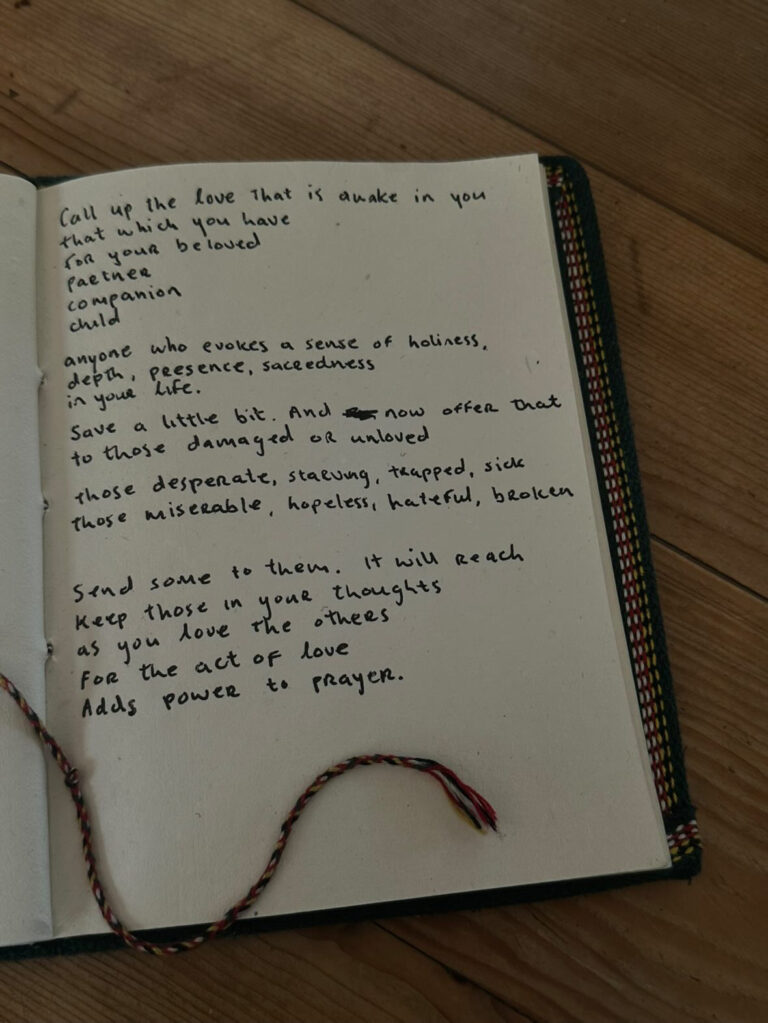 Call up the love that is awake in you
that which you have
for your beloved
partner
companion
child
anyone who evokes a sense of holiness,
depth, presence, sacredness
in your life.
Save a little bit. And now offer that
to those damaged or unloved
those desperate, starving, trapped, sick
those miserable, hopeless, hateful, broken
Send some to them. It will reach
Keep those in your thoughts
as you love the others
For the act of love
Adds power to prayer.